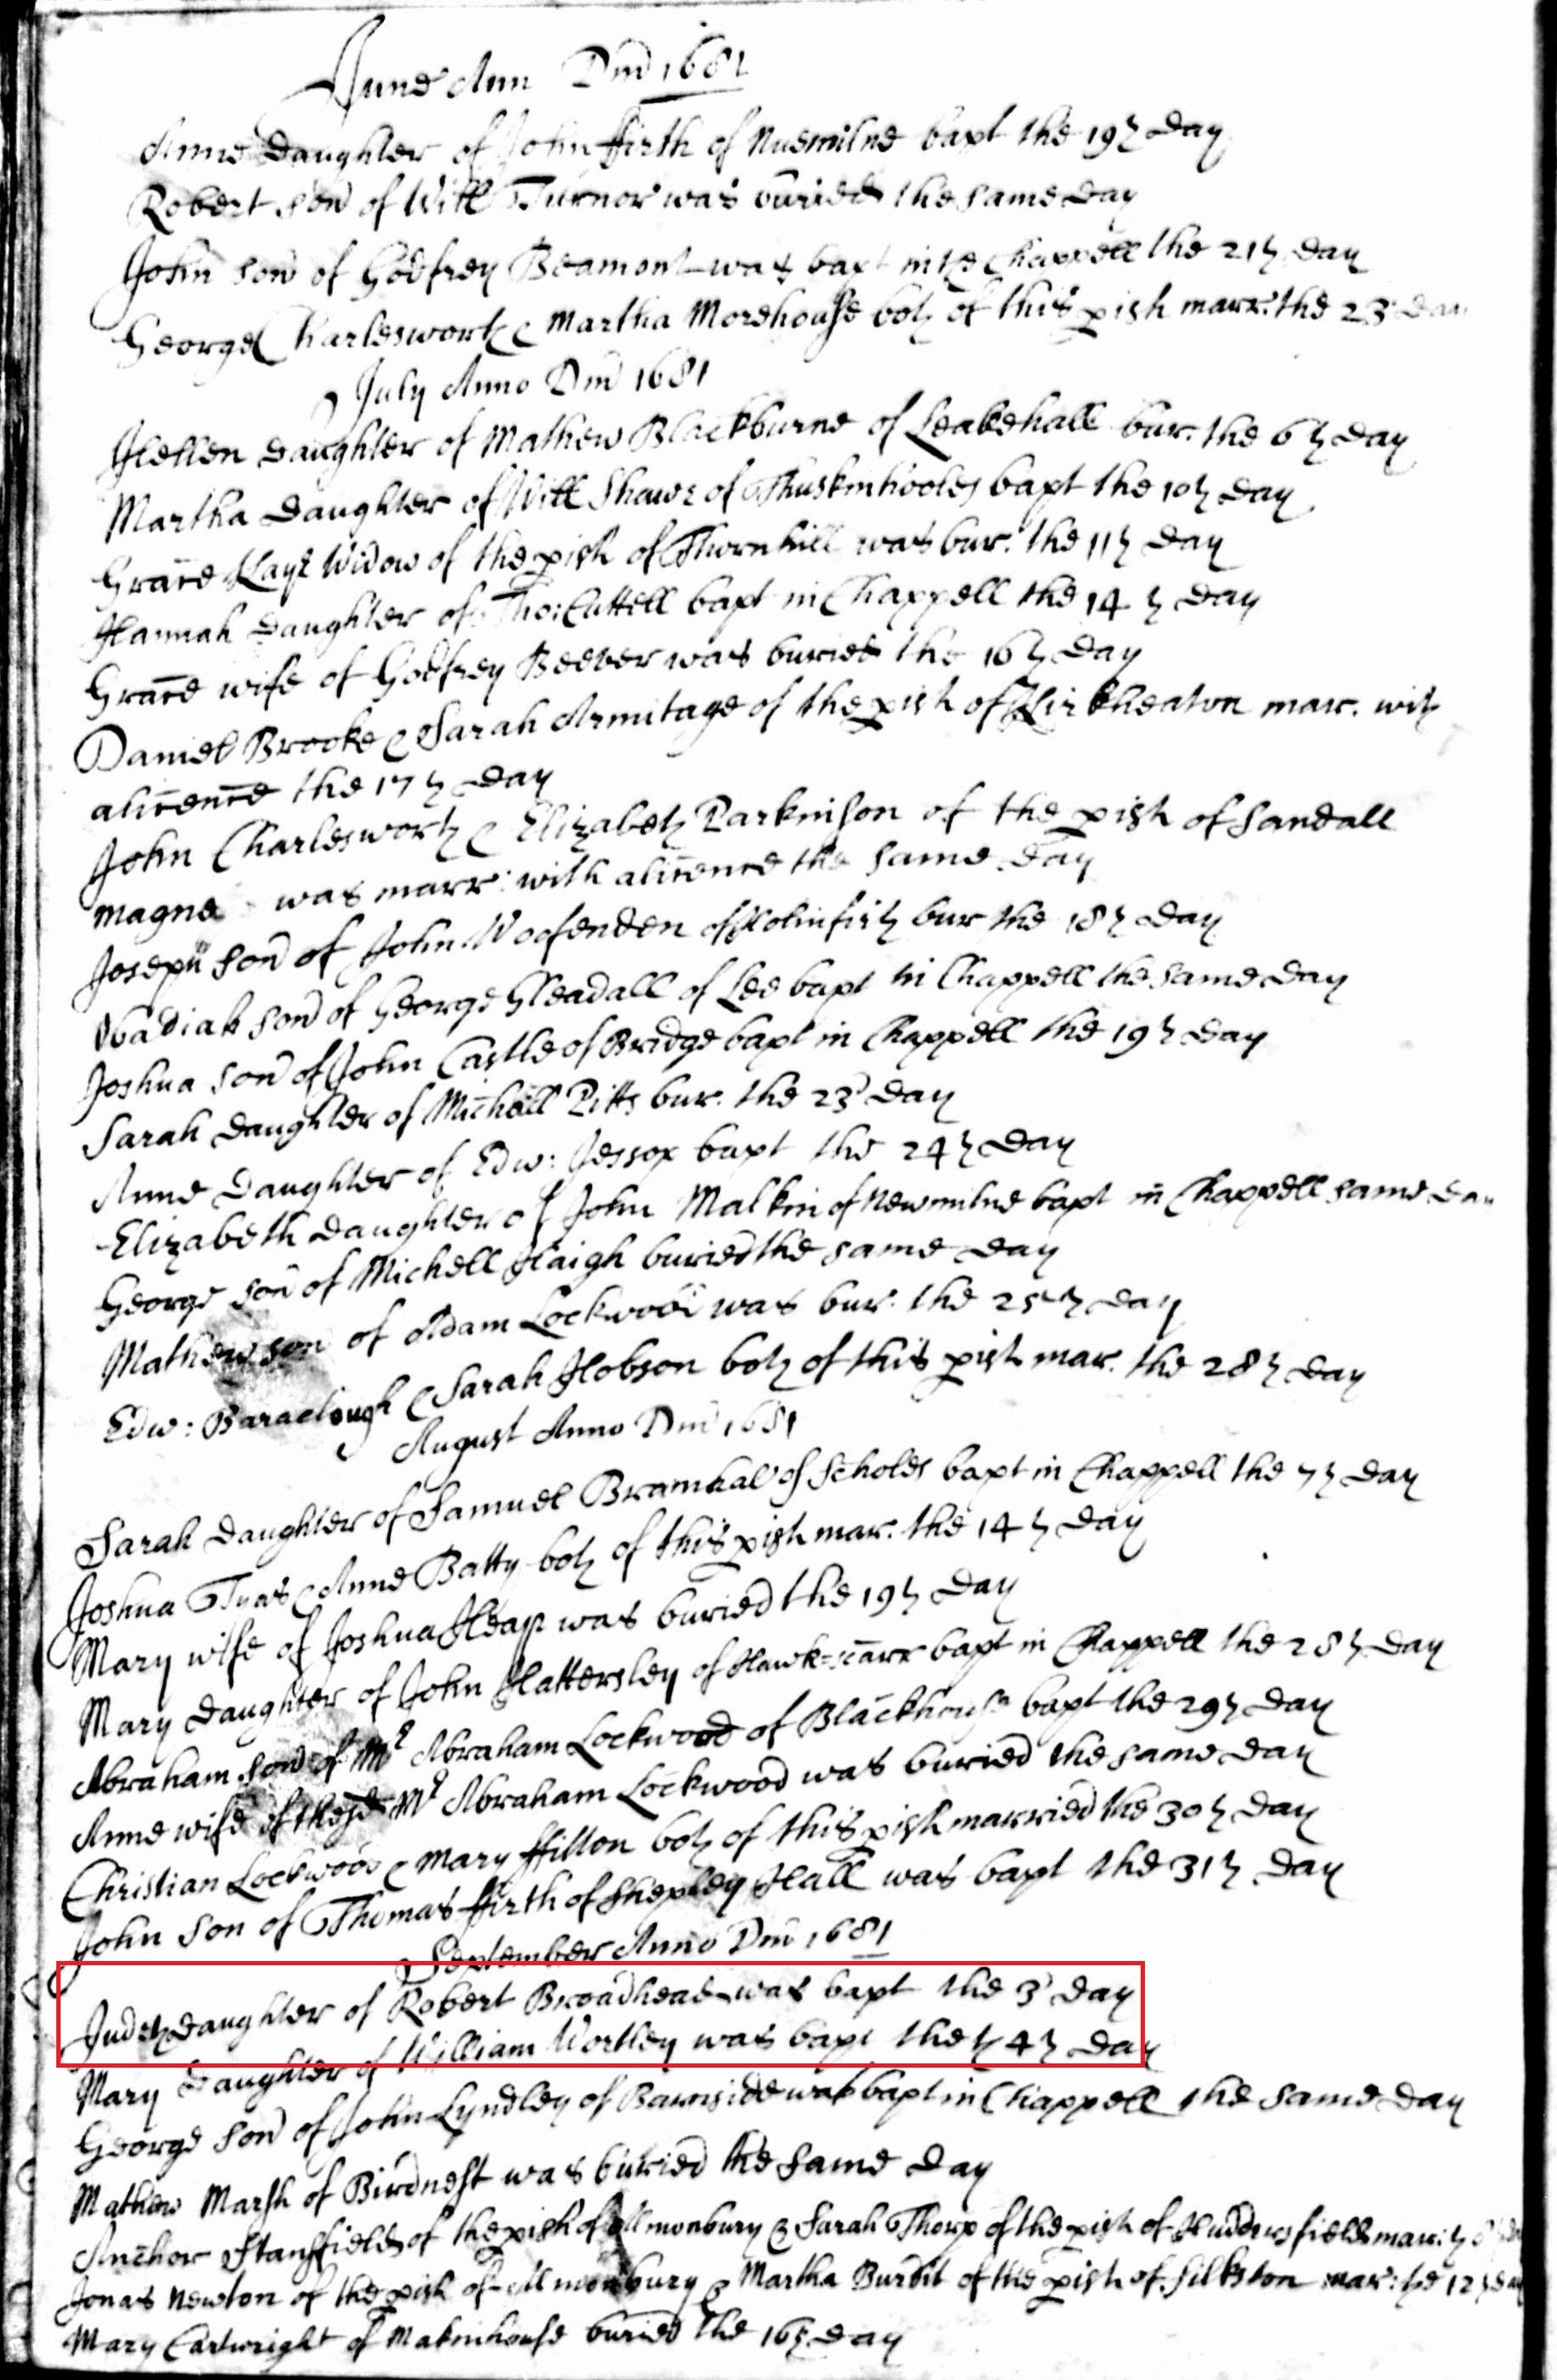 June Ann Dm̄ 1681
Anne Daughter of John ffirth of Nuemilne bapt the 19th Day
Robert son̄ of Will Turnor was buried the same Day
John son̄ of Godfrey Beamont was bapt in the Chappell the 21th Day
George Charlesworth & Martha Morehouse both of this pish marr. the 23 Day
July Anno Dm̄ 1681
Hellen Daughter of Mathew Blackburne of Leakehall bur. the 6th Day
Martha Daughter of Will Shawe of Thuskinhooles bapt the 10th Day
Grace Kaye Widow of the pish of Thornhill was bur. the 11th Day
Hannah Daughter of Tho: Cuttell bapt in Chappell the 14th Day
Grace wife of Godfrey Beever was buried the 16th Day
Daniel Brooke & Sarah Armitage of the pish of Kirkheaton mar. with
alicence the 17th Day
John Charlesworth & Elizabeth Parkinson of the pish of Sandall
magna was marr: with alicence the same Day
Joseph son̄ of John Woofenden of Holmfirth bur the 18th Day
Obadiah son̄ of George Gleadall of Lee bapt in Chappell the same Day
Joshua son̄ of John Castle of Bridge bapt in Chappell the 19th Day
Sarah Daughter of Michell Pitts bur. the 23 Day
Anne Daughter of Edw: Jessop bapt the 24th Day
Elizabeth Daughter of John Malkin of Newmilne bapt in Chappell same Day
George son̄ of Michell Haigh buried the same Day
Mathew son of Adam Lockwood was bur. the 25th Day
Edw: Baraclough & Sarah Hobson both of this pish mar. the 28th Day
August Anno Dm̄ 1681
Sarah Daughter of Samuel Bramhal of Scholes bapt in Chappell the 7th Day
Joshua Tyas & Anne Batty both of this pish mar. the 14th Day
Mary wife of Joshua Heap was buried the 19th Day
Mary Daughter of John Hattersley of Hawk=carr bapt in Chappell the 28th Day
Abraham son̄ of Mr Abraham Lockwood of Blackhouse bapt the 29th Day
Anne wife of the sd Mr Abraham Lockwood was buried the same Day
Christian Lockwood & Mary ffitton both of this pish married the 30th Day
John Son of Thomas ffirth of Shepley Hall was bapt the 31th Day
September Anno Dm̄ 1681
Judeth Daughter of Robert Broadhead was bapt the 3 Day
Mary Daughter of William Wortley was bapt the 4th Day
George son̄ of John Lyndley of Barnside was bapt in Chappell the same Day
Mathew Marsh of Birdnest was buried the same Day
Anchor Stanffield of the pish of Allmonbury & Sarah Thorp of the pish of Huddersfield mar:
Jonas Newton of the pish of Allmonbury & Martha Burdit of the pish of Silkston mar: the 12th Day
Mary Cartwright of Makinhouse buried the 16th Day